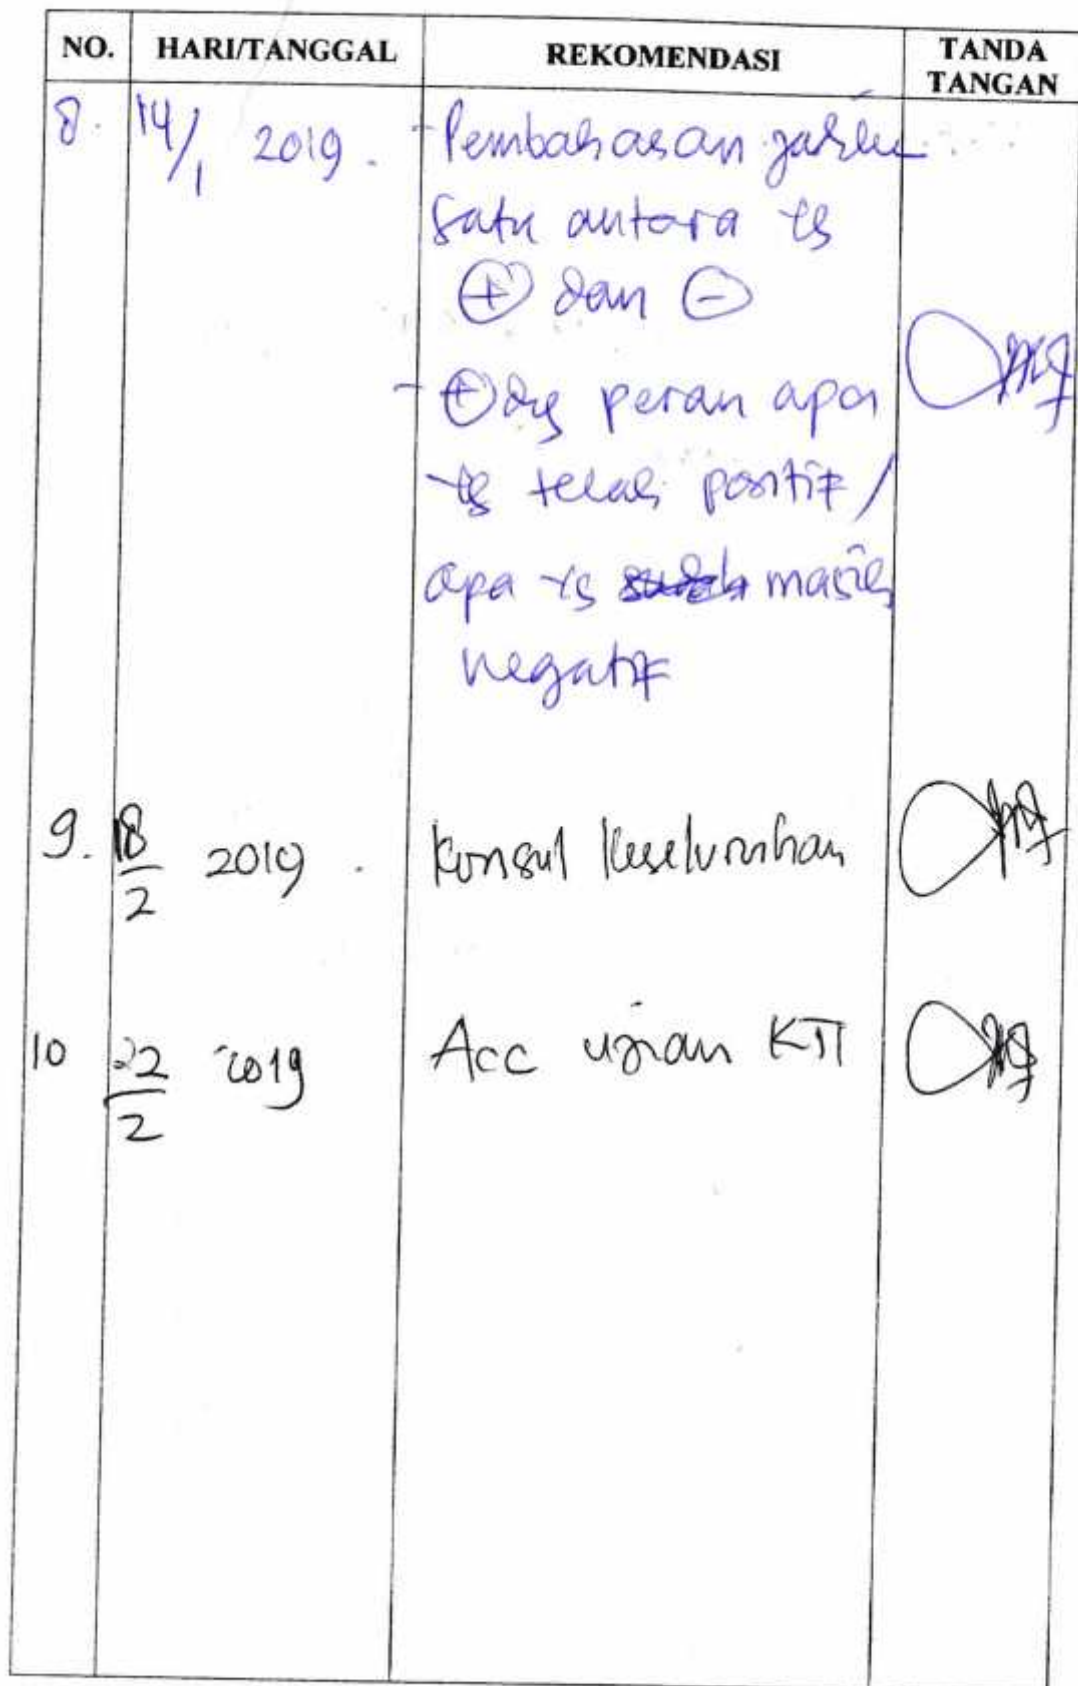 NO. HARI/TANGGAL REKOMENDASI TANDA TANGAN
8. 14/1 2019. - Pembahasan
satu antara yg
⊕ dan ⊖
- ⊕ dg peran apa
yg telah positif /
apa yg masih
negatif
9. 18/2 2019. Konsul Keseluruhan
10 22/2 2019 Acc ujian KTI